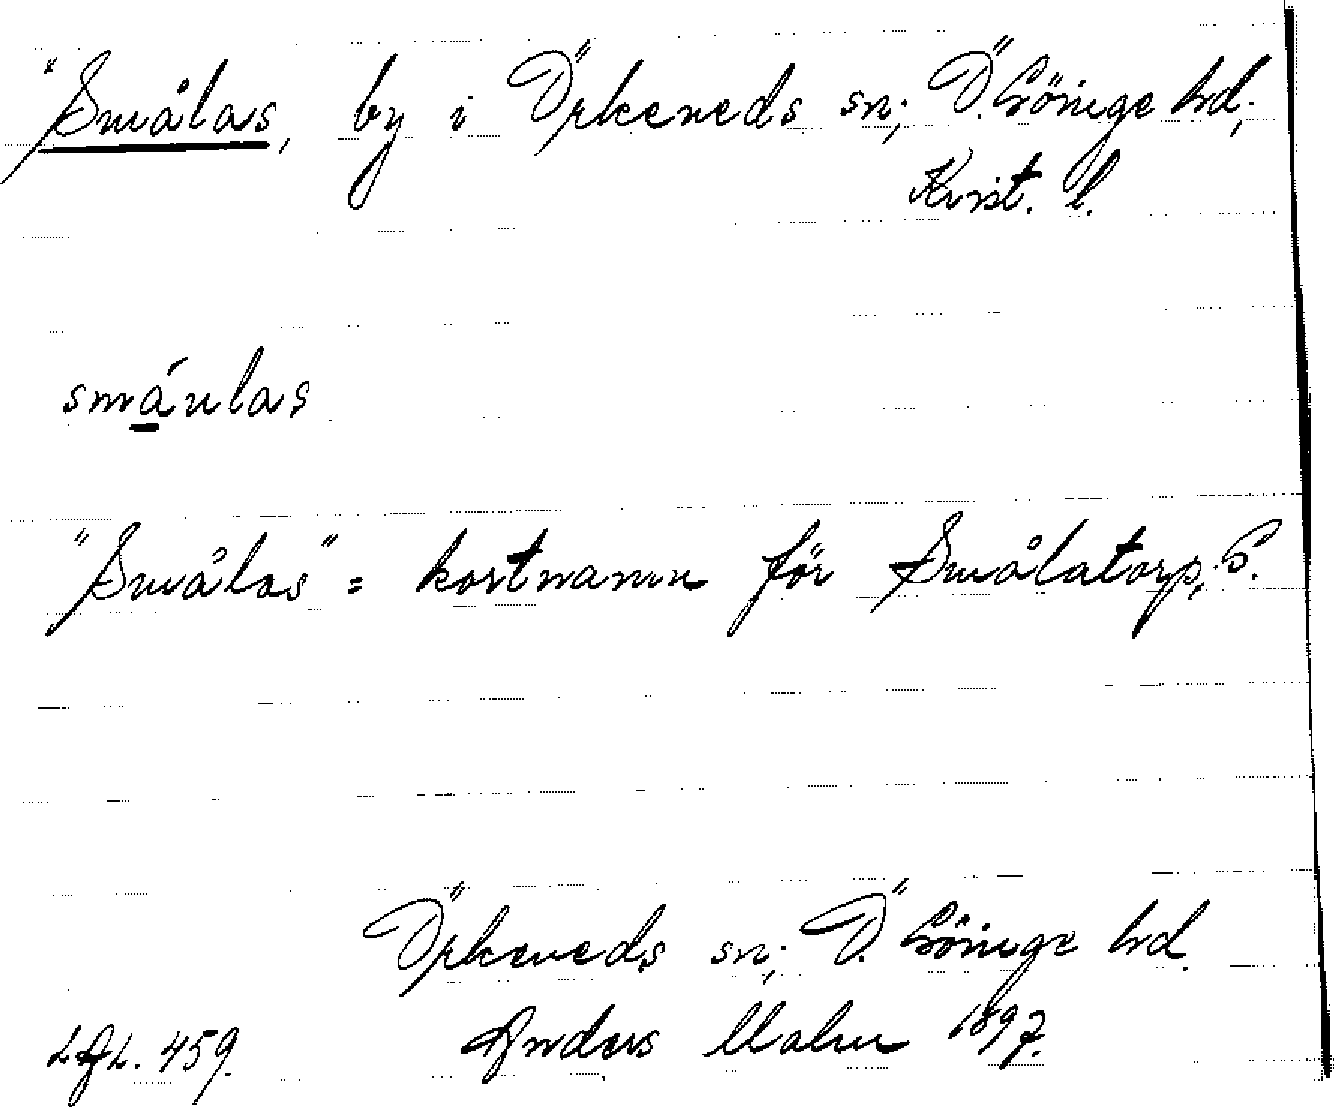 "Smålas, by i Örkeneds sn; Ö. Göinge hd;
Krist. l.
smáulas
"Smålas" = kortnamn för Smålatorp, S.
Örkeneds sn; Ö. Göinge hd.
LAL. 459. Anders Malm 1897.